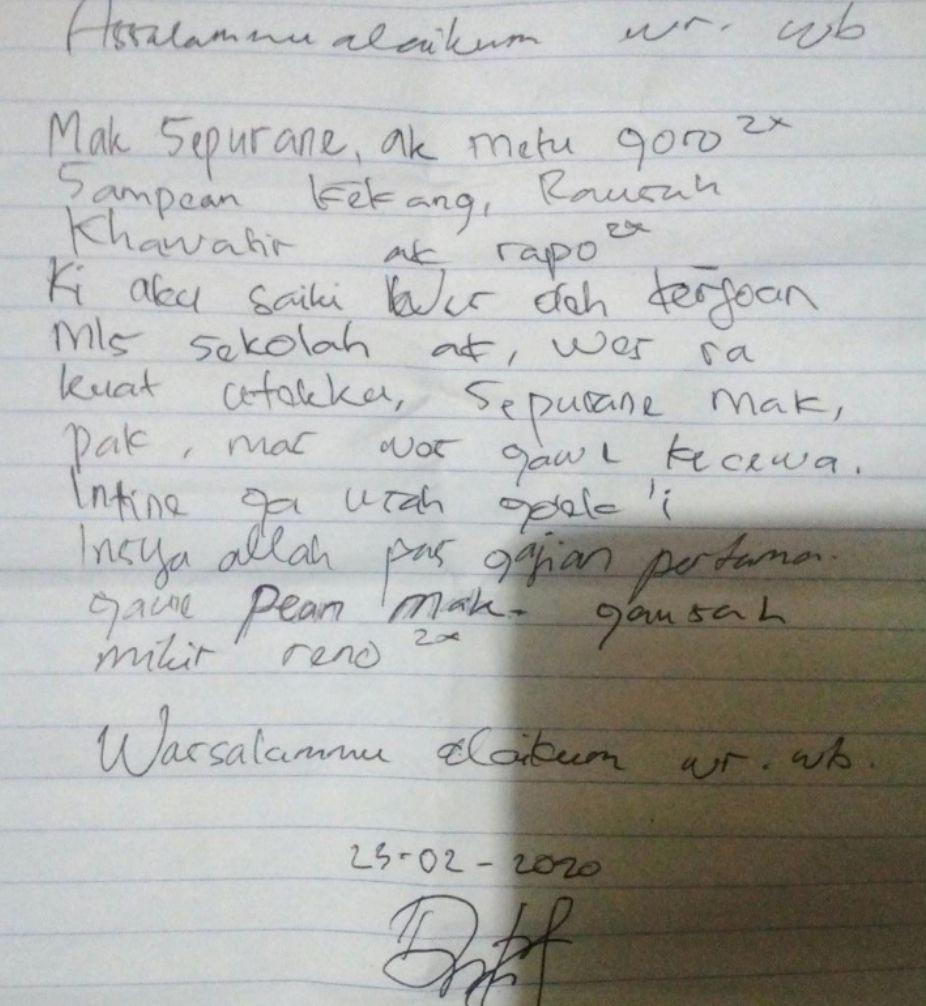 Assalammu alaikum wr. wb
Mak Sepurane, ak metu goro 2x
Sampean kekang, Rausah
Khawatir ak rapo 2x
Ki aku saiki wes deh kerjoan
Mls sekolah ak, wes ra
kuat utekku, Sepurane Mak,
pak, mas wes gawe kecewa.
Intine ga usah golek'i
Insya allah pas gajian pertama
gawe Pean mak- gausah
mikir reno 2x
Warsalammu alaikum wr. wb.
23-02-2020